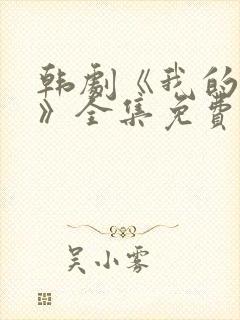 韩劇《我的
》全集免費
吴小雾